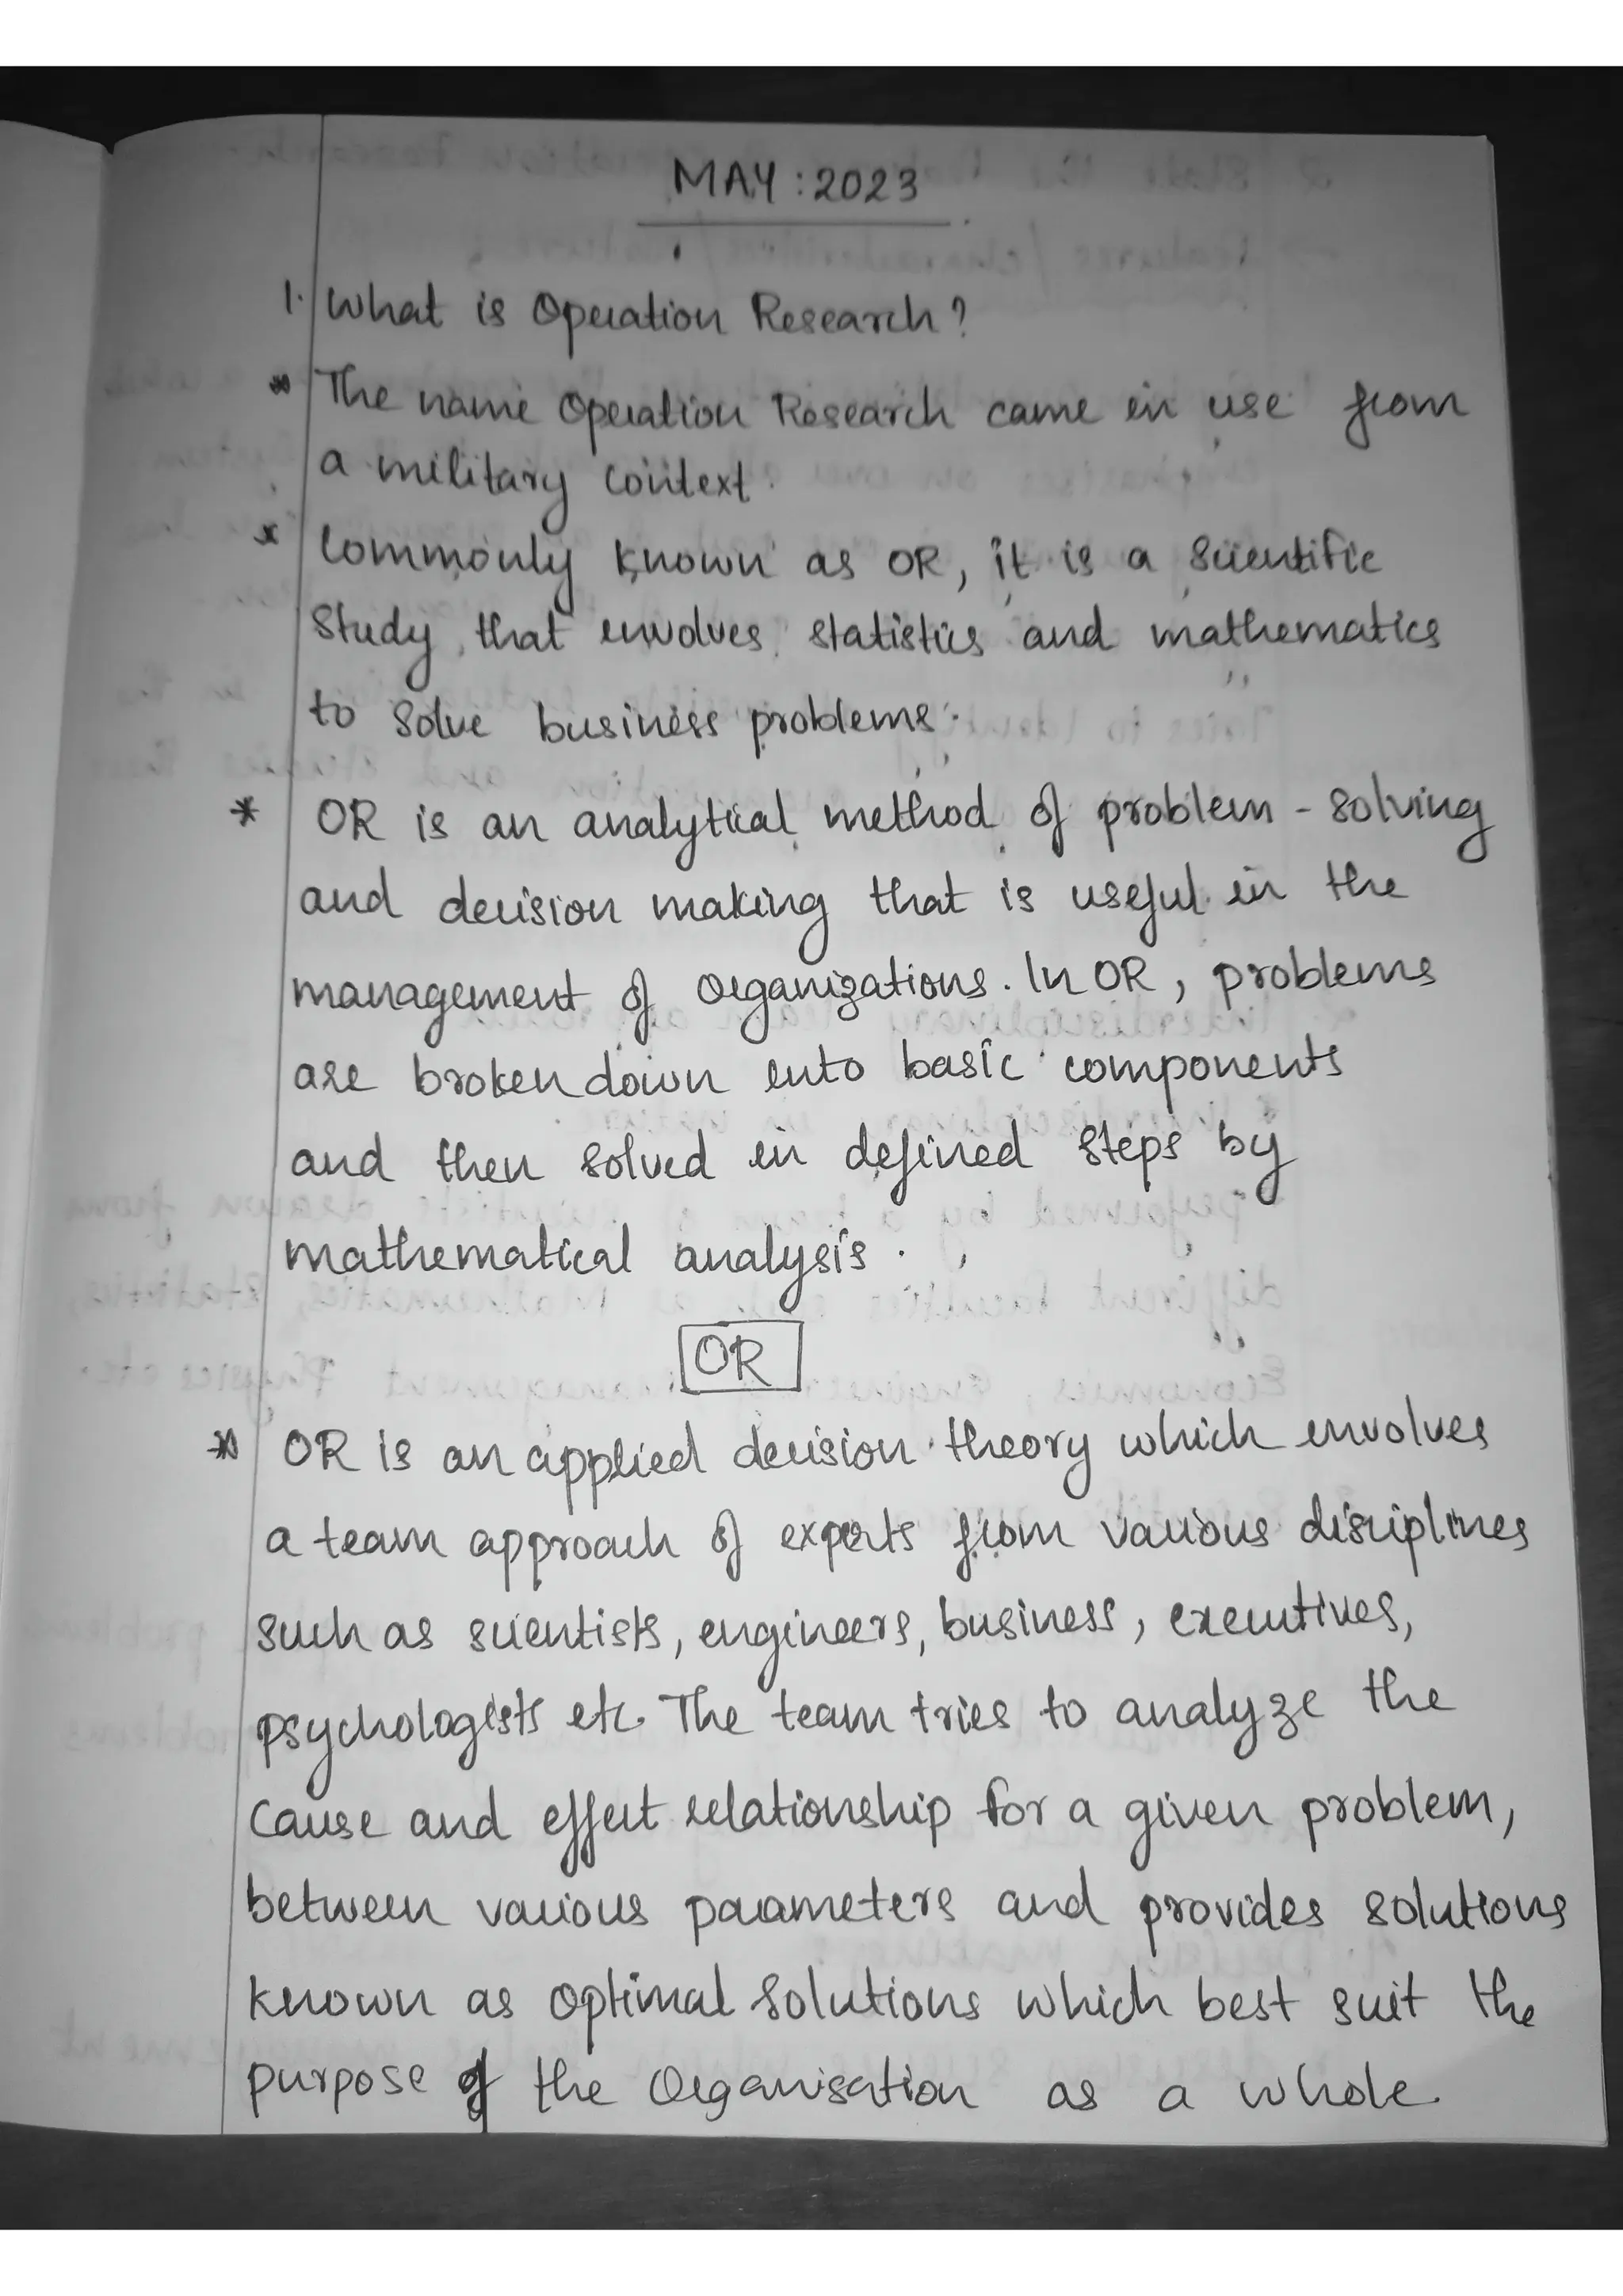 MAY : 2023
1. What is Operation Research?
* The name Operation Research came in use from
a military context.
* Commonly known as OR, it is a scientific
study that involves statistics and mathematics
to solve business problems.
* OR is an analytical method of problem - solving
and decision making that is useful in the
management of organizations. In OR, problems
are broken down into basic components
and then solved in defined steps by
mathematical analysis.
OR
* OR is an applied decision theory which involves
a team approach of experts from various disciplines
such as scientists, engineers, business, executives,
psychologists etc. The team tries to analyze the
cause and effect relationship for a given problem,
between various parameters and provides solutions
known as optimal solutions which best suit the
purpose of the Organisation as a whole.